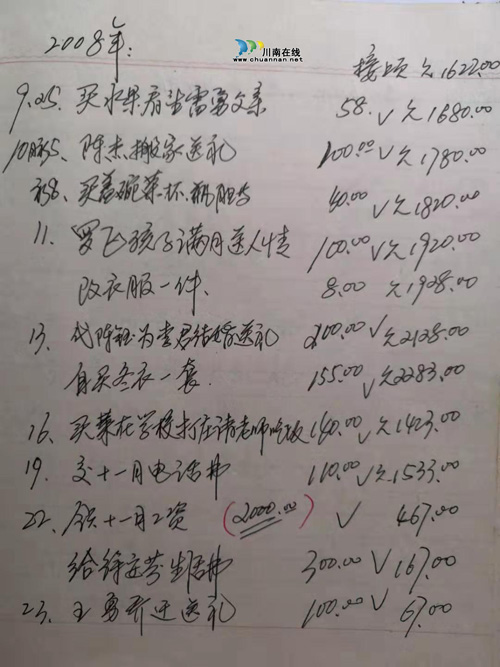 川南在线
www.chuannan.net
2008年:
接頃 元1622.00
9.25. 买水果看望雷勇父亲 58. √ 元1680.00
10月5、陈杰搬家送礼 100.00 √ 元1780.00
买盖碗菜杯、瓶胆 40.00 √ 元1820.00
11. 罗飞孩子满月送人情 100.00 √ 元1920.00
改衣服一件、 8.00 元1928.00
13. 代陈 为李君结婚送礼 200.00 √ 元2128.00
自买冬衣一套. 155.00 √ 元2283.00
16. 买菜在学校 请老师吃饭 140.00 √ 元1423.00
19. 交十一月电话费 110.00 √ 元1533.00
22. 领十一月工资 (2000.00) √ 467.00
给徐 芬生活费 300.00 √ 167.00
23. 王勇乔迁送礼 100.00 √ 67.00